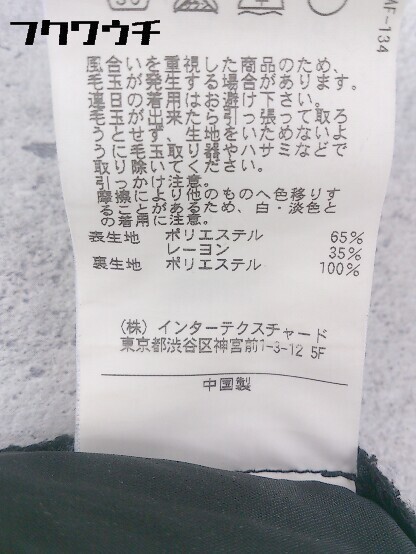 フクワウチ
MF-134
風合いを重視した商品のため、
毛玉が発生する場合があります。
連日の着用はお避け下さい。
毛玉が出来たら引っ張って取ろ
うとせず、生地をいためないよ
うに毛玉取り器やハサミなどで
取り除いてください。
引っかけ注意。
摩擦により他のものへ色移りす
ることがあるため、白・淡色と
の着用に注意。
表生地 ポリエステル 65%
レーヨン 35%
裏生地 ポリエステル 100%
(株) インターテクスチャード
東京都渋谷区神宮前1-3-12 5F
中国製